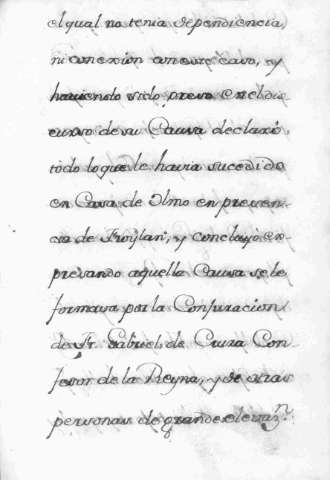 el qual no tenia dependiencia,
ni conexion con este caso, y
haviendo sido preso en el dis
curso de su Causa declaró,
todo lo que le havia sucedido
en Casa de Olmo en presen-
cia de Froylan, y concluyó ex-
presando aquella Causa se le
formava por la Conjuracion
de Fr. Gabriel, de Cuya Con-
fesor de la Reyna, y de otras
personas de grande elevaz.n